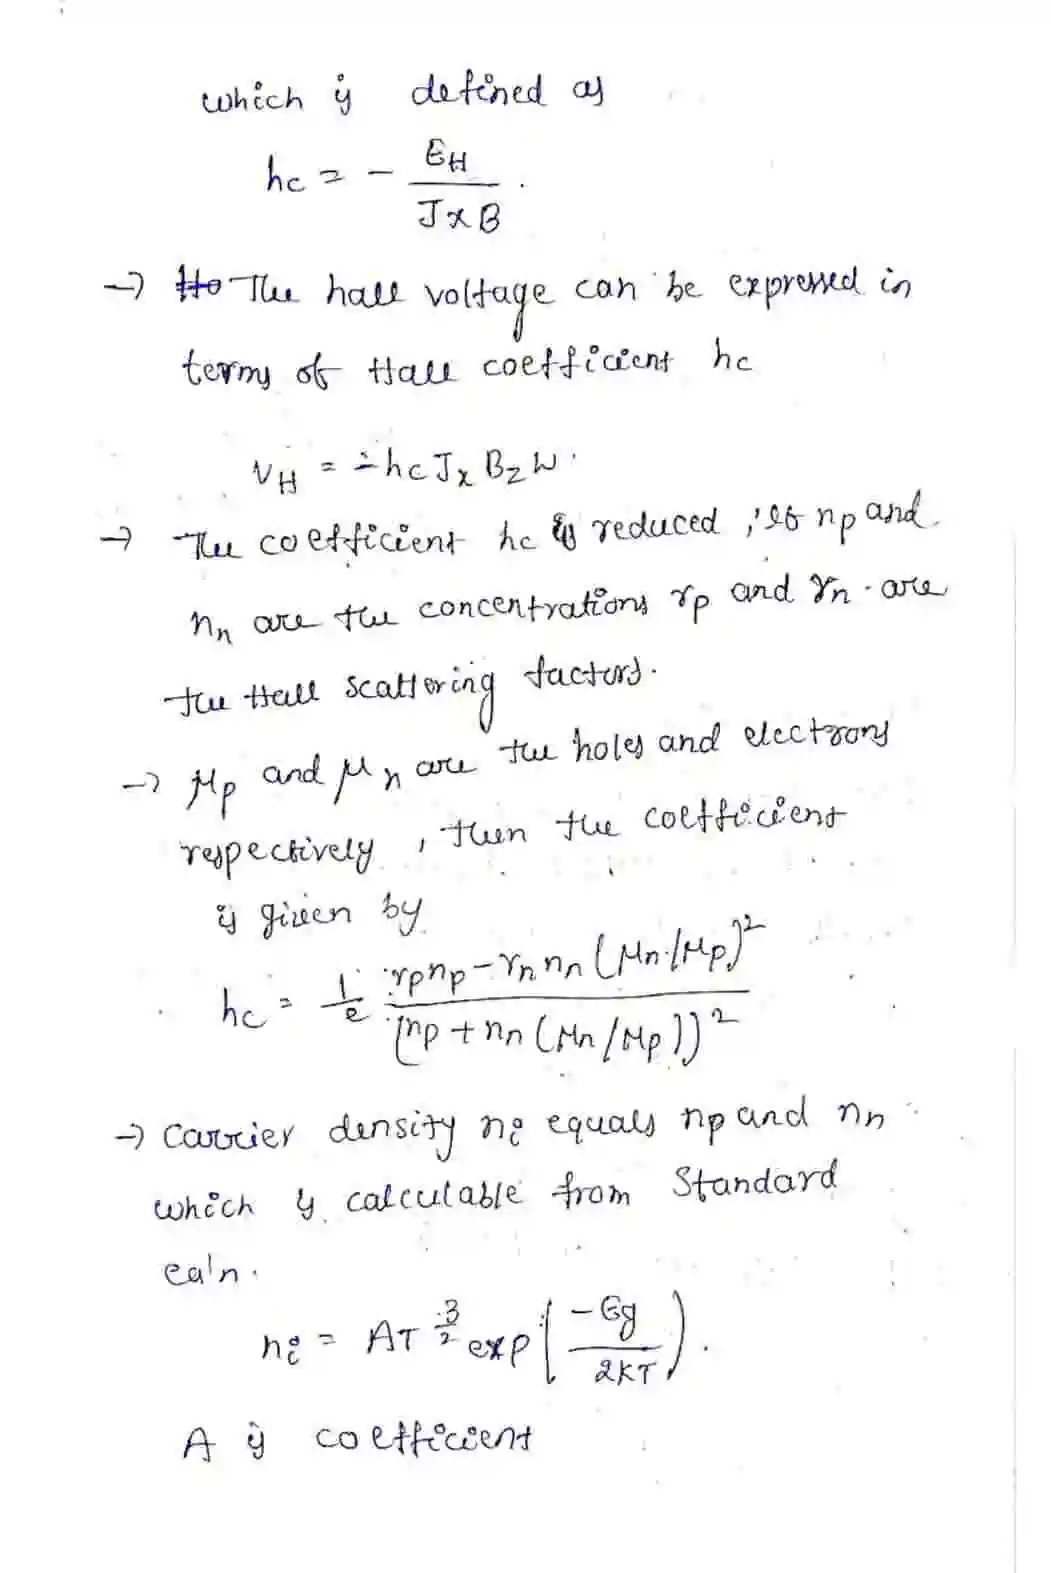 which is defined as
hc = - EH / J x B .
→ The hall voltage can be expressed in
terms of Hall coefficient hc
VH = -hc Jx Bz W .
→ The coefficient hc is reduced , if np and
nn are the concentrations rp and rn . are
the Hall scattering factors.
→ μp and μn are the holes and electrons
respectively , then the coefficient
is given by
hc = 1/e rpnp - rn nn (μn/μp)² / [np + nn (μn/μp)]²
→ Carrier density ni equals np and nn
which is calculable from Standard
ea'n .
ni = AT^3/2 exp ( -Eg / 2KT ) .
A is coefficient